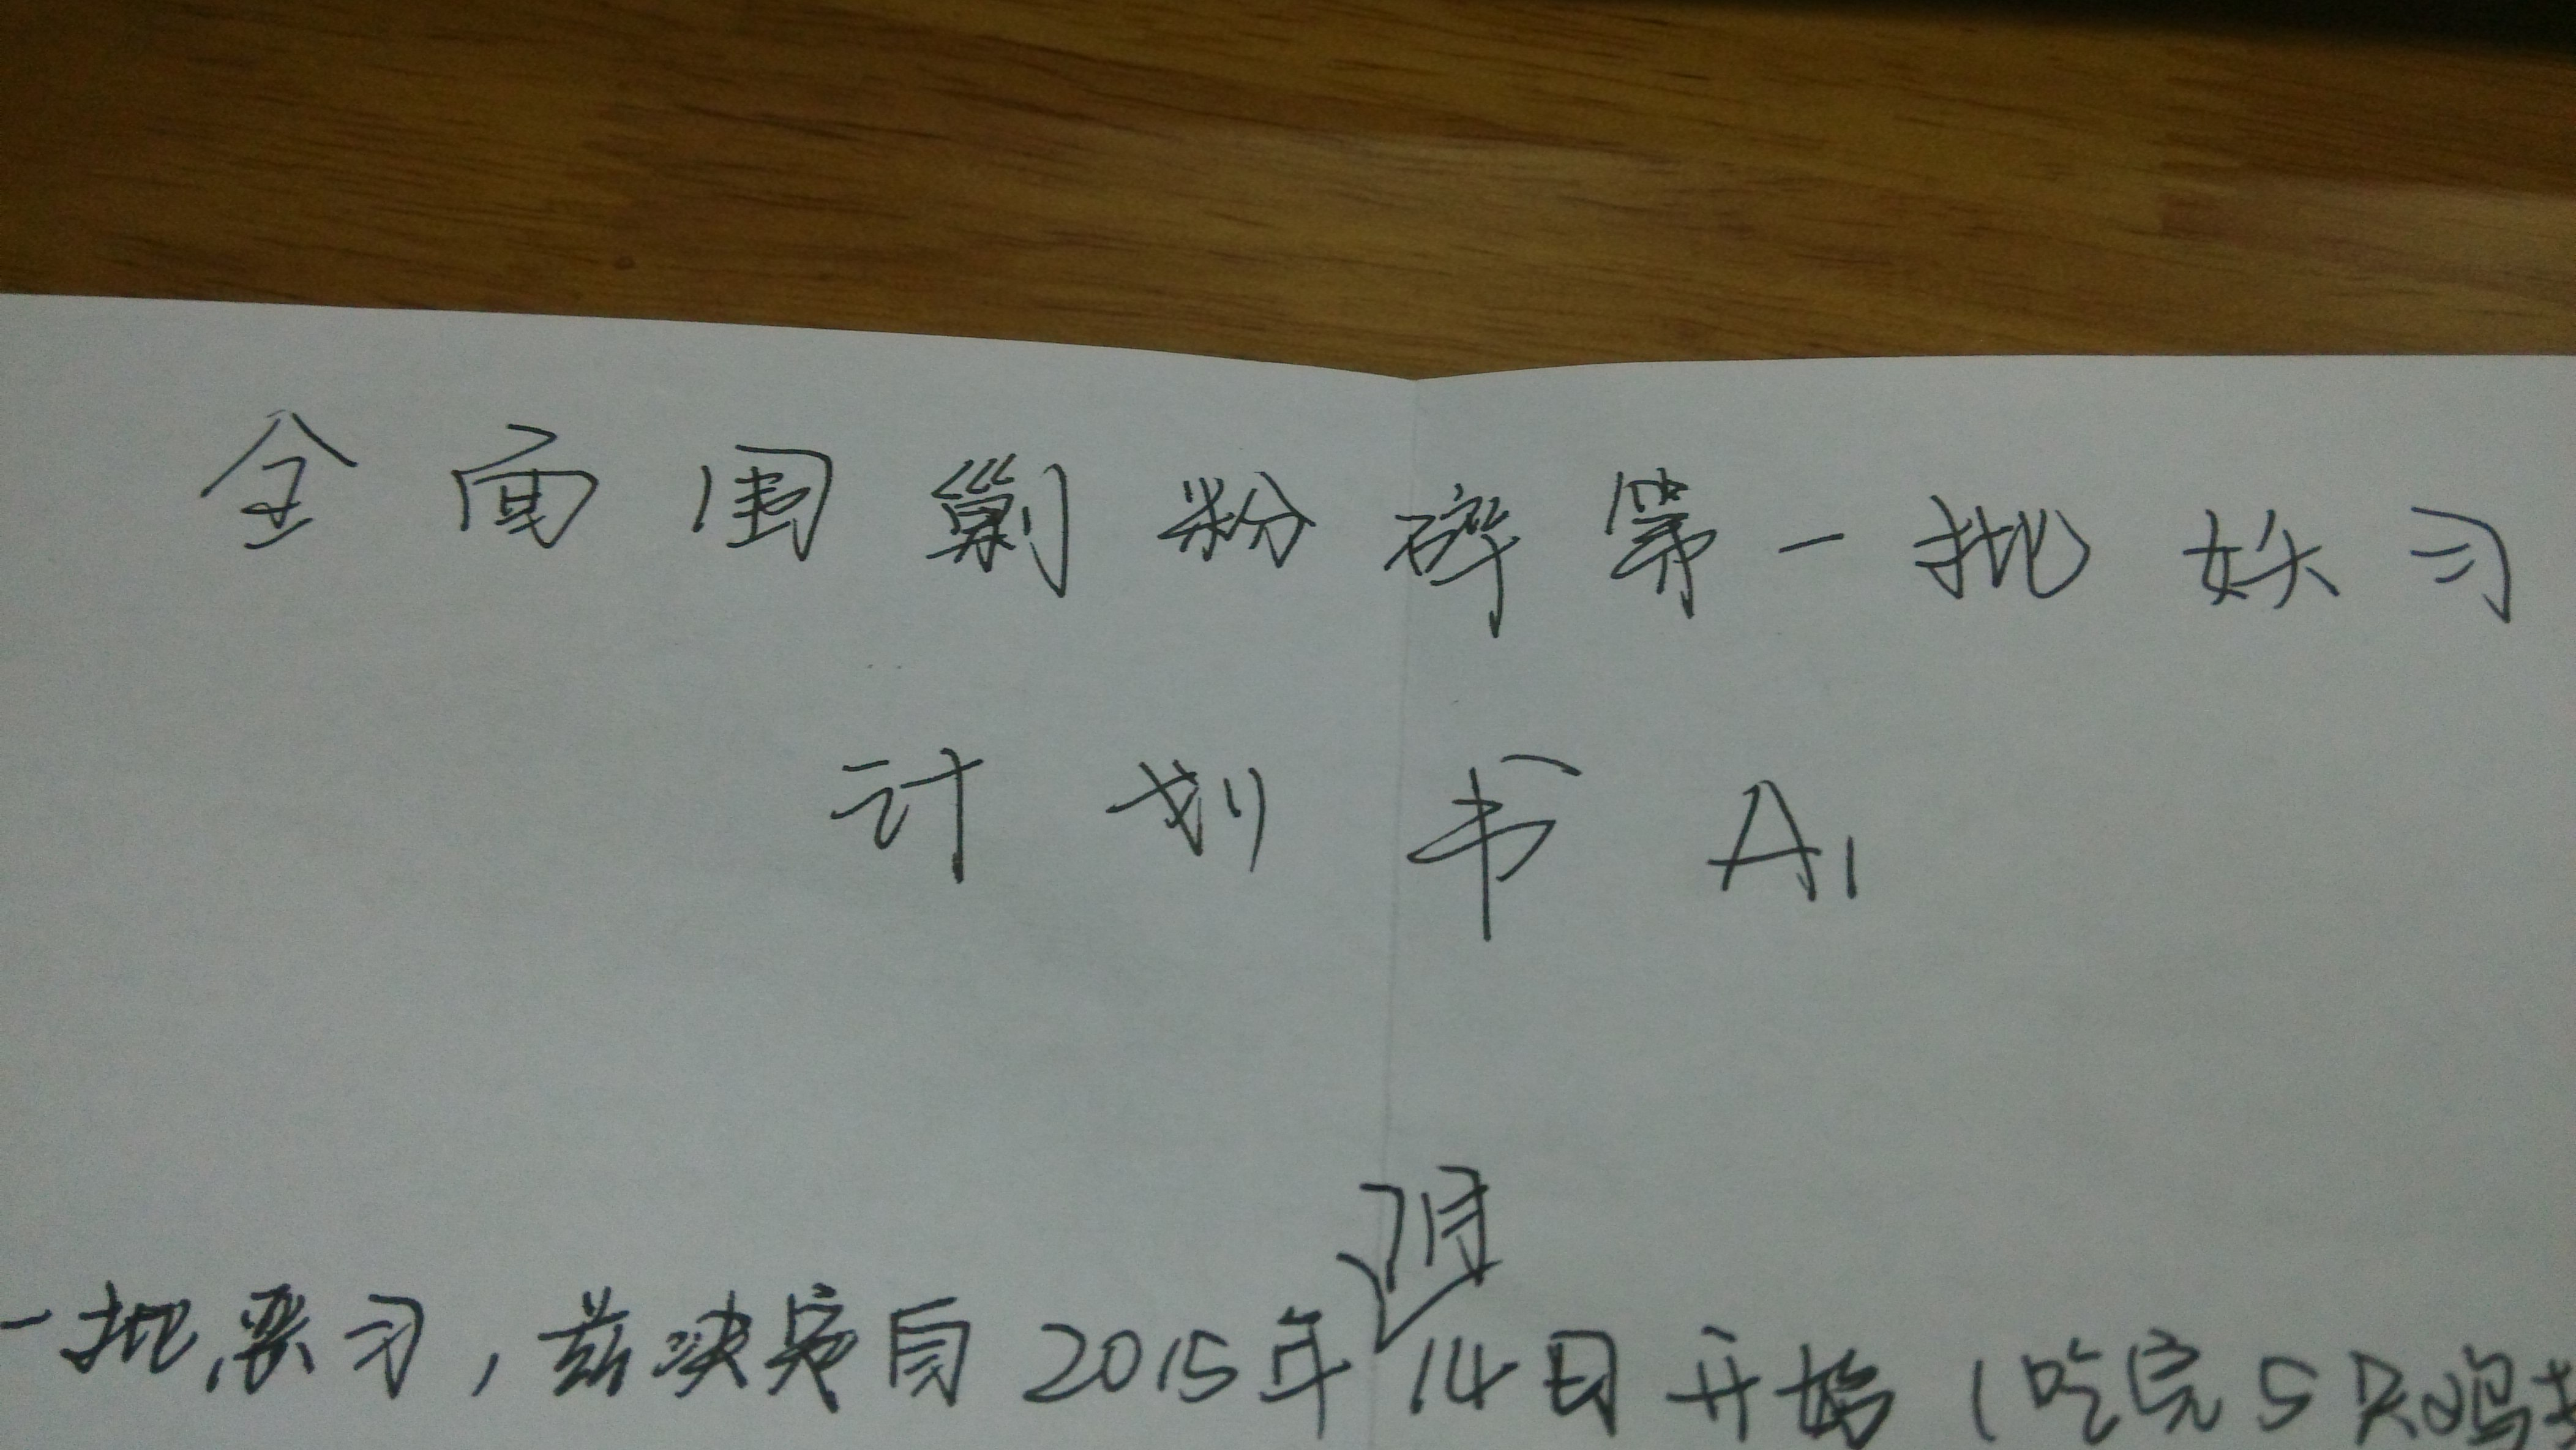 全面围剿粉碎第一批妖习
计划书A1
7月
一批恶习，兹决定自2015年14日开始（吃完5只鸡